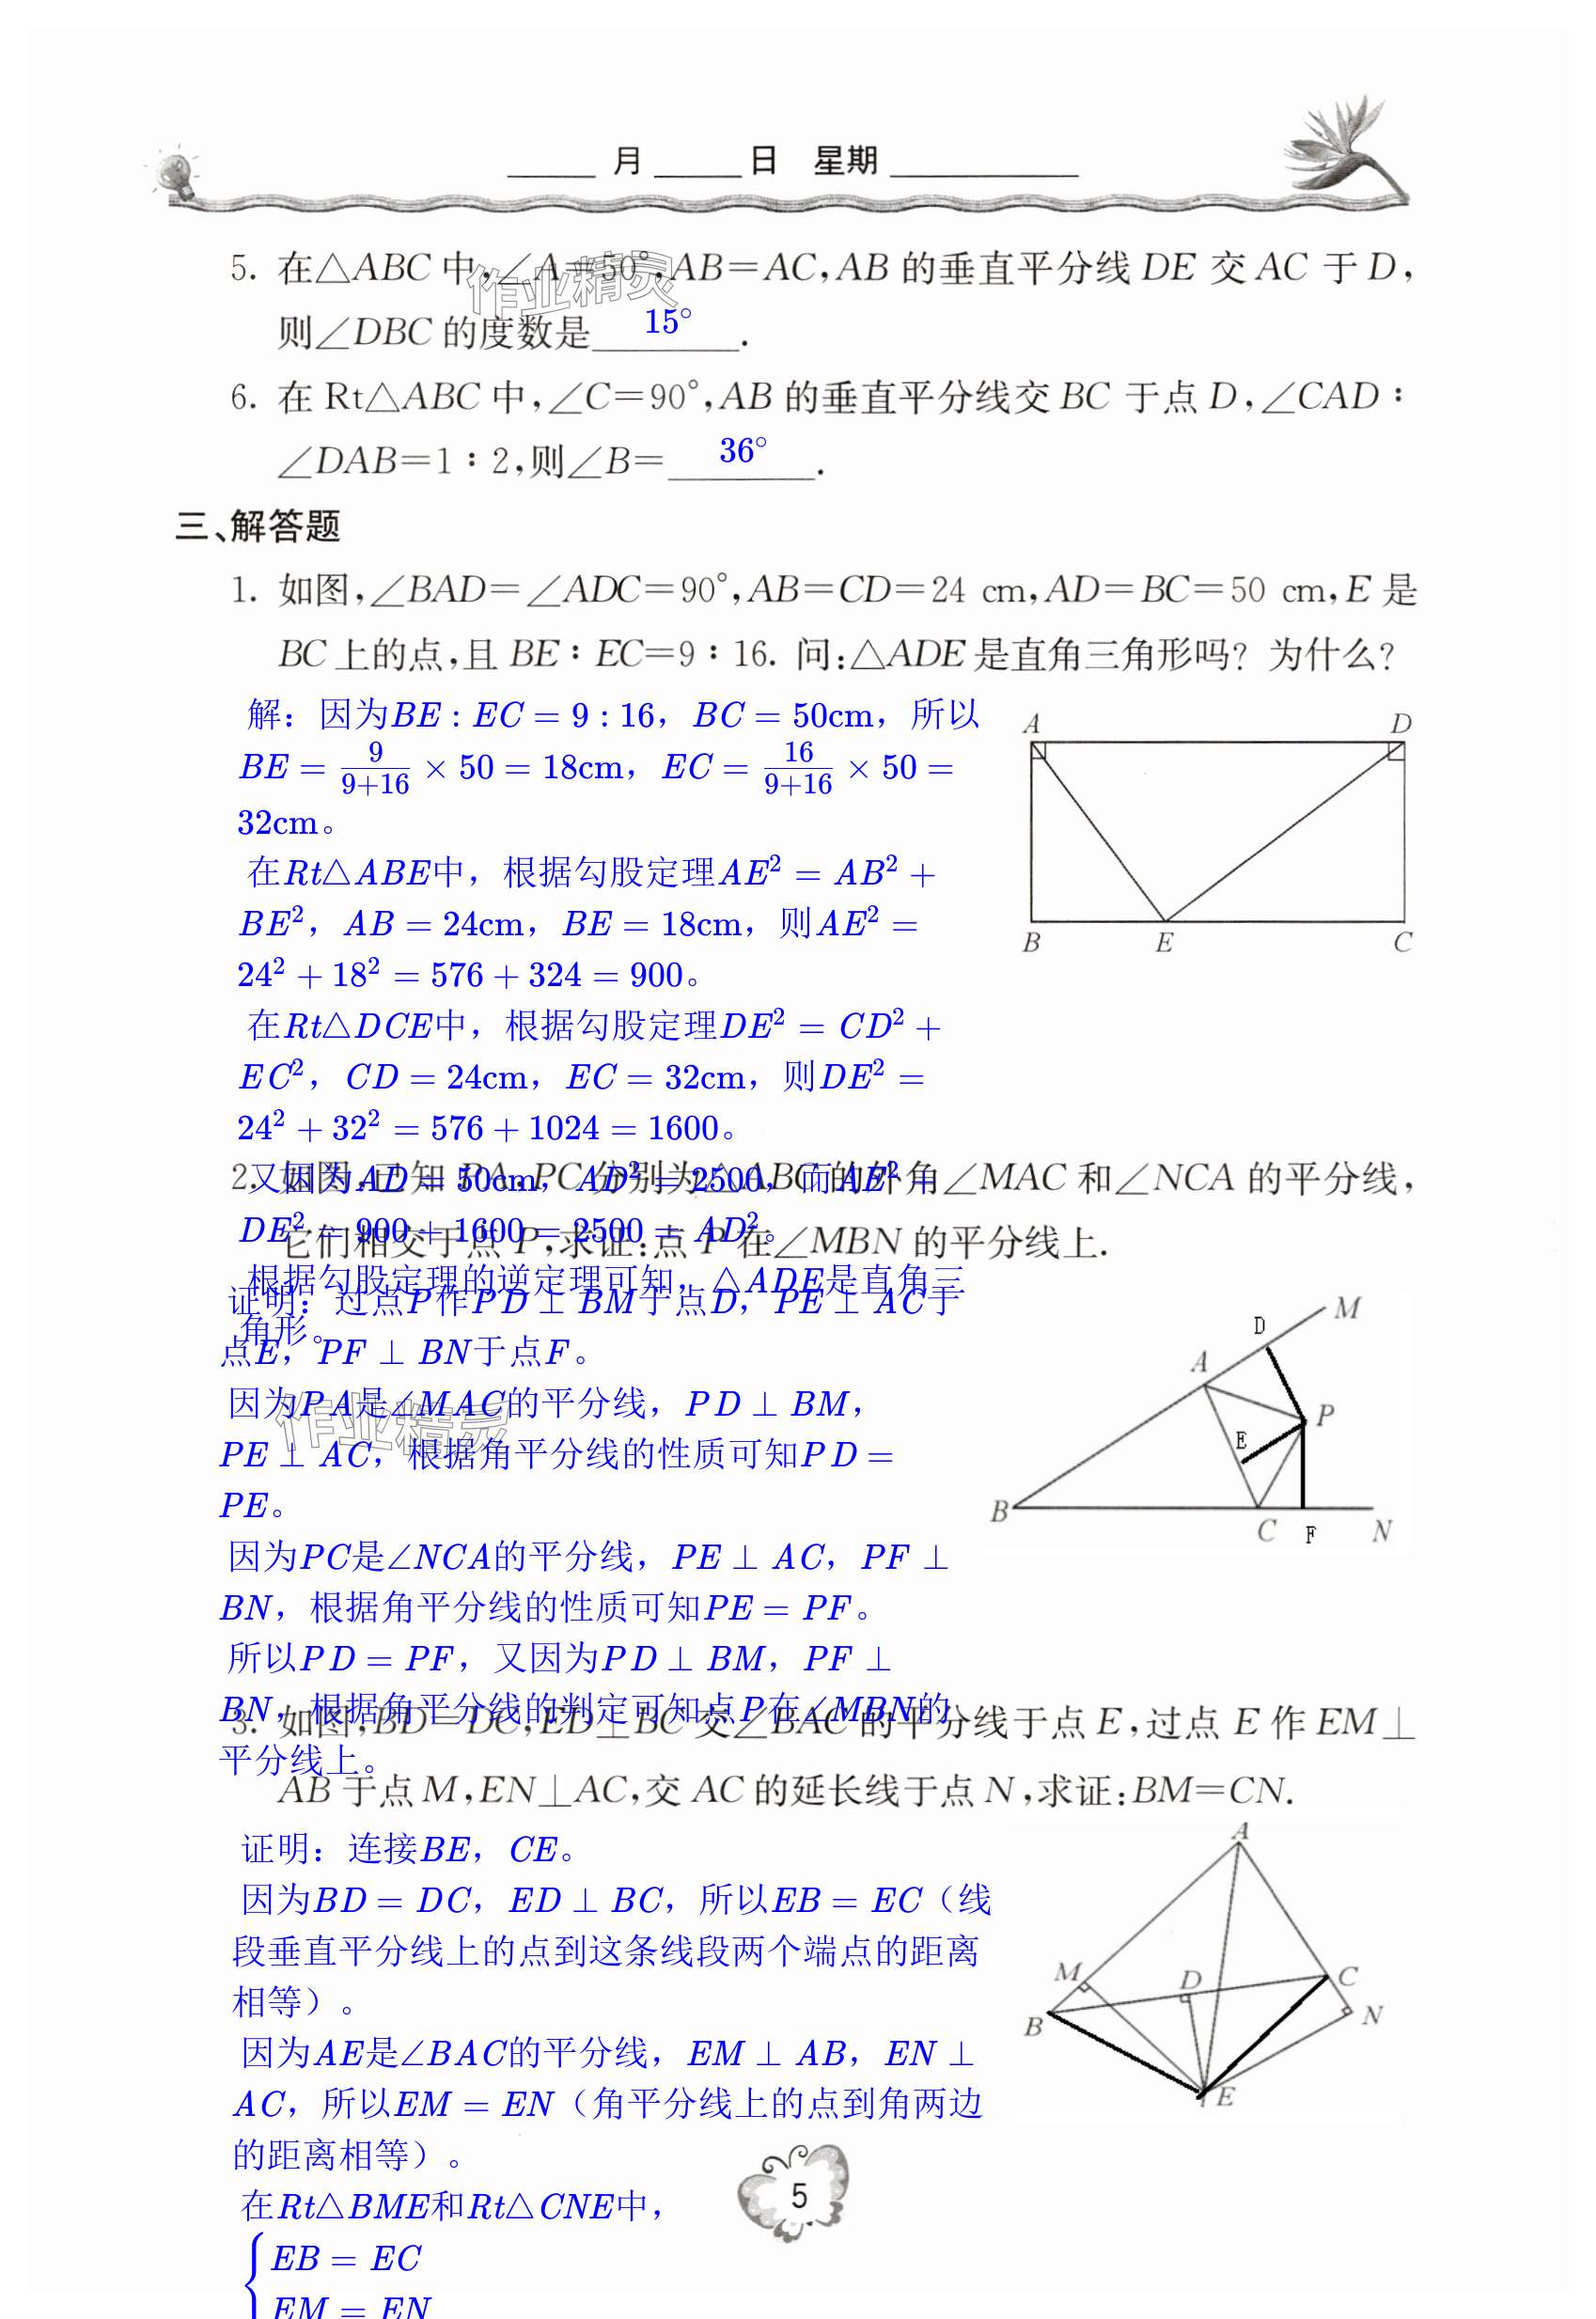 月 日 星期
5. 在△ABC中,∠A=50°,AB=AC,AB的垂直平分线DE交AC于D,
则∠DBC的度数是 15° .
6. 在Rt△ABC中,∠C=90°,AB的垂直平分线交BC于点D,∠CAD:
∠DAB=1:2,则∠B= 36° .
三、解答题
1. 如图,∠BAD=∠ADC=90°,AB=CD=24 cm,AD=BC=50 cm,E是
BC上的点,且BE:EC=9:16. 问:△ADE是直角三角形吗? 为什么?
解：因为BE : EC = 9 : 16，BC = 50cm，所以
BE = 9/(9+16) × 50 = 18cm，EC = 16/(9+16) × 50 =
32cm。
在Rt△ABE中，根据勾股定理AE² = AB² +
BE²，AB = 24cm，BE = 18cm，则AE² =
24² + 18² = 576 + 324 = 900。
在Rt△DCE中，根据勾股定理DE² = CD² +
EC²，CD = 24cm，EC = 32cm，则DE² =
24² + 32² = 576 + 1024 = 1600。
又因为AD = 50cm，AD² = 2500，而AE² +
DE² = 900 + 1600 = 2500 = AD²。
根据勾股定理的逆定理可知，△ADE是直角三
角形。
A D
B E C
2. 如图,已知PA,PC分别为△ABC的外角∠MAC和∠NCA的平分线,
它们相交于点P,求证:点P在∠MBN的平分线上.
证明：过点P作PD ⊥ BM于点D，PE ⊥ AC于
点E，PF ⊥ BN于点F。
因为PA是∠MAC的平分线，PD ⊥ BM，
PE ⊥ AC，根据角平分线的性质可知PD =
PE。
因为PC是∠NCA的平分线，PE ⊥ AC，PF ⊥
BN，根据角平分线的性质可知PE = PF。
所以PD = PF，又因为PD ⊥ BM，PF ⊥
BN，根据角平分线的判定可知点P在∠MBN的
平分线上。
D M
A
P
E
B C F N
3. 如图,BD=DC,ED⊥BC交∠BAC的平分线于点E,过点E作EM⊥
AB于点M,EN⊥AC,交AC的延长线于点N,求证:BM=CN.
证明：连接BE，CE。
因为BD = DC，ED ⊥ BC，所以EB = EC（线
段垂直平分线上的点到这条线段两个端点的距离
相等）。
因为AE是∠BAC的平分线，EM ⊥ AB，EN ⊥
AC，所以EM = EN（角平分线上的点到角两边
的距离相等）。
在Rt△BME和Rt△CNE中，
{EB = EC
EM = EN
A
M D C
B N
E
5
作业精灵
作业精灵